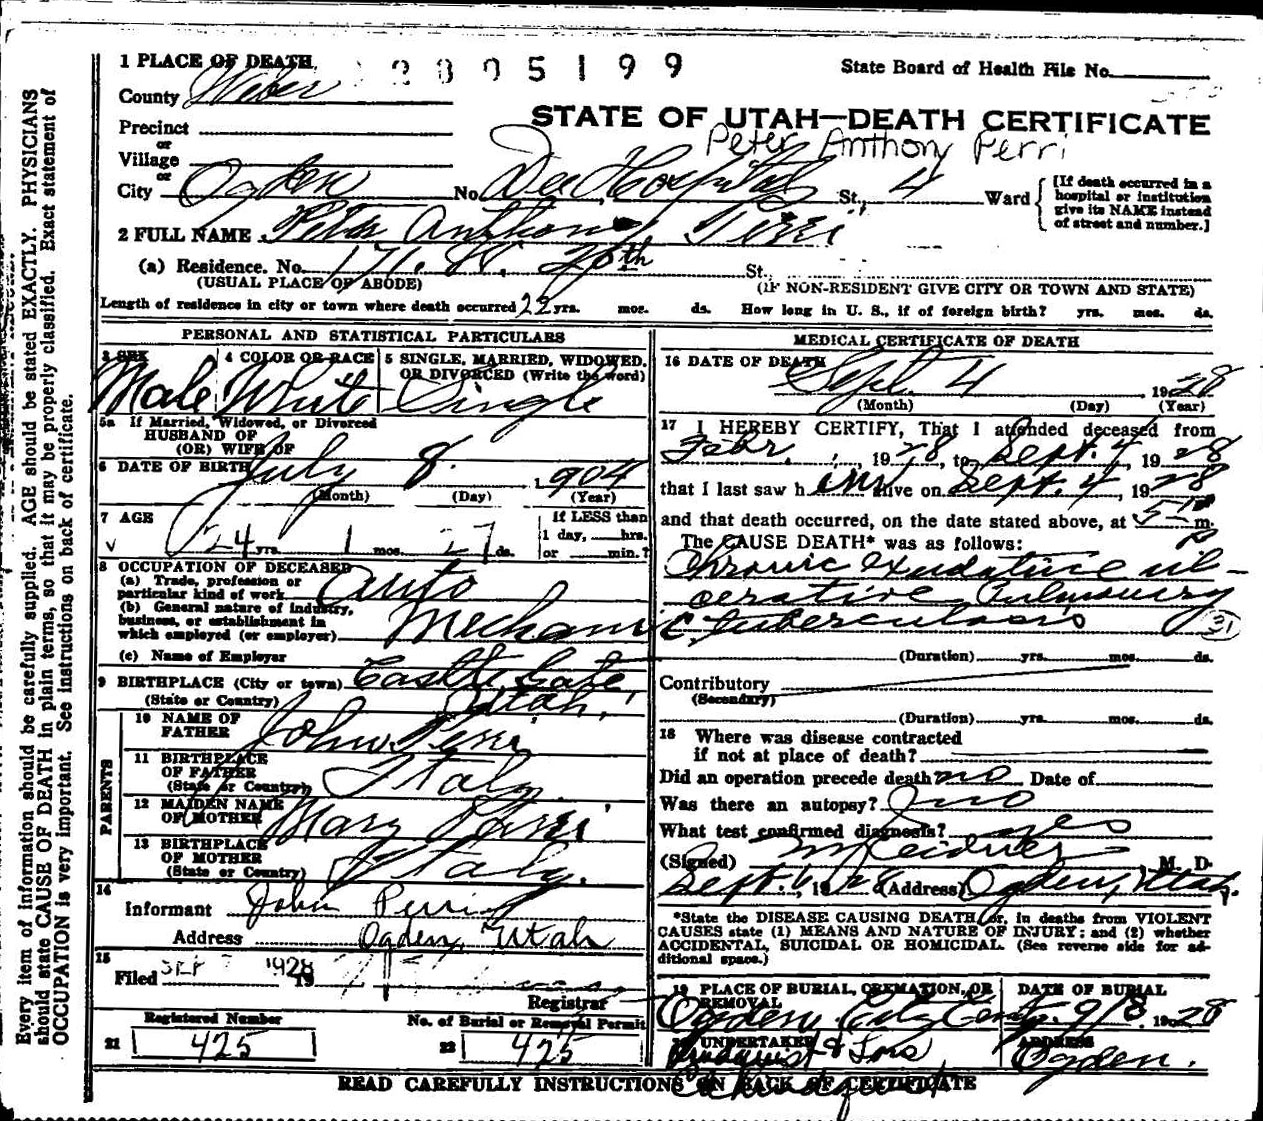 1 PLACE OF DEATH
2805199
State Board of Health File No.
County Weber
STATE OF UTAH—DEATH CERTIFICATE
Precinct
Peter Anthony Perri
or
Village
or
City Ogden No. Dee Hospital St., 4 Ward
[If death occurred in a hospital or institution give its NAME instead of street and number.]
2 FULL NAME Peter Anthony Perri
(a) Residence. No. 171. W. 20th St.
(USUAL PLACE OF ABODE) (IF NON-RESIDENT GIVE CITY OR TOWN AND STATE)
Length of residence in city or town where death occurred 22 yrs. mos. ds. How long in U. S., if of foreign birth? yrs. mos. ds.
PERSONAL AND STATISTICAL PARTICULARS
3 SEX 4 COLOR OR RACE 5 SINGLE, MARRIED, WIDOWED, OR DIVORCED (Write the word)
Male White Single
5a If Married, Widowed, or Divorced
HUSBAND OF
(OR) WIFE OF
6 DATE OF BIRTH July 8 1904
(Month) (Day) (Year)
7 AGE If LESS than
24 yrs. 1 mos. 27 ds. 1 day, hrs.
or min.?
8 OCCUPATION OF DECEASED
(a) Trade, profession or
particular kind of work Auto
(b) General nature of industry,
business, or establishment in
which employed (or employer) Mechanic
(c) Name of Employer
9 BIRTHPLACE (City or town) Castle Gate,
(State or Country) Utah.
PARENTS
10 NAME OF
FATHER John Perri
11 BIRTHPLACE
OF FATHER
(State or Country) Italy.
12 MAIDEN NAME
OF MOTHER Mary Perri
13 BIRTHPLACE
OF MOTHER
(State or Country) Italy.
14
Informant John Perri
Address Ogden, Utah
15
Filed SEP 1928 19
Registrar
Registered Number No. of Burial or Removal Permit
21 425 22 425
MEDICAL CERTIFICATE OF DEATH
16 DATE OF DEATH
Sept. 4 1928
(Month) (Day) (Year)
17 I HEREBY CERTIFY, That I attended deceased from
Febr. , 1928, to Sept. 4, 1928
that I last saw him alive on Sept. 4, 1928
and that death occurred, on the date stated above, at 5 P m.
The CAUSE DEATH* was as follows:
Chronic exudative ul-
cerative Pulmonary
tuberculosis
31
(Duration) yrs. mos. ds.
Contributory
(Secondary)
(Duration) yrs. mos. ds.
18 Where was disease contracted
if not at place of death?
Did an operation precede death no Date of
Was there an autopsy? no
What test confirmed diagnosis? yes
(Signed) M. D.
Sept. 6, 1928 (Address) Ogden, Utah.
*State the DISEASE CAUSING DEATH, or, in deaths from VIOLENT
CAUSES state (1) MEANS AND NATURE OF INJURY; and (2) whether
ACCIDENTAL, SUICIDAL OR HOMICIDAL. (See reverse side for ad-
ditional space.)
19 PLACE OF BURIAL, CREMATION, OR REMOVAL DATE OF BURIAL
Ogden City Cemty. 9/8 1928
20 UNDERTAKER ADDRESS
Lindquist & Sons Ogden.
READ CAREFULLY INSTRUCTIONS ON BACK OF CERTIFICATE
Every item of information should be carefully supplied. AGE should be stated EXACTLY. PHYSICIANS
should state CAUSE OF DEATH in plain terms, so that it may be properly classified. Exact statement of
OCCUPATION is very important. See instructions on back of certificate.